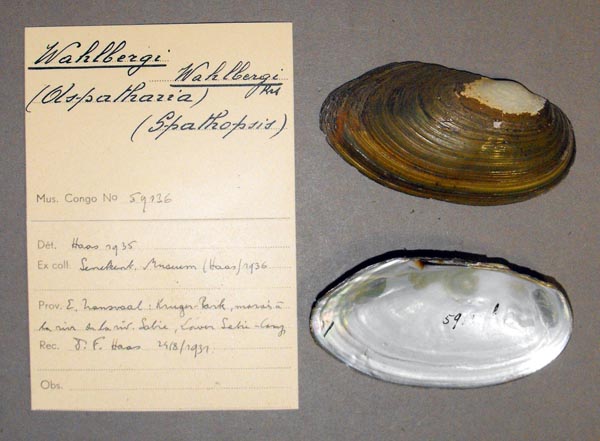 Wahlbergi
Wahlbergi
Krs
(Aspatharia)
(Spathopsis)
Mus. Congo No 59136
Dét. Haas 1935
Ex coll. Senckenb. Museum (Haas) 1936
Prov. E. Transvaal: Kruger-Park, marais à
la riv. de la riv. Sabie, Lower Sabie-Camp
Rec. Dr F. Haas 25/8/1931
Obs.
59